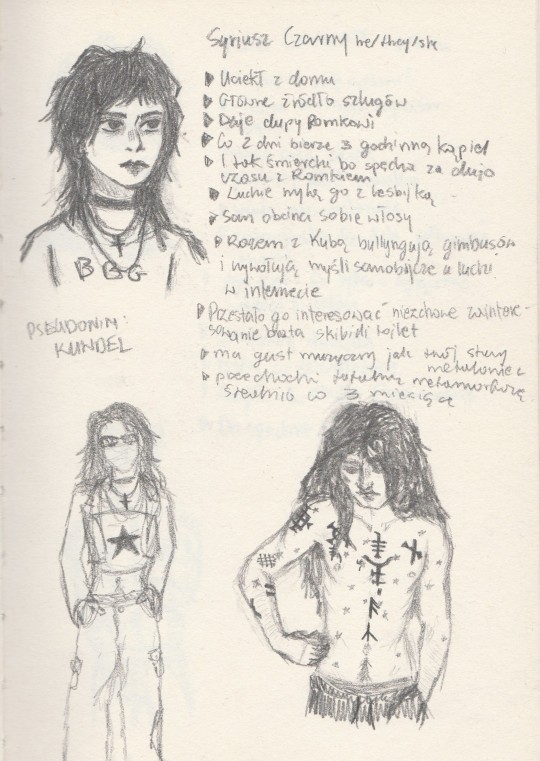 Syriusz Czarny he/they/she
Uciekł z domu
Główne źródło szlugów
Daje dupy Romkowi
Co 2 dni bierze 3 godzinną kąpiel
I tak śmierdzi bo spędza za dużo
czasu z Romkiem
Ludzie mylą go z lesbijką
Sam obcina sobie włosy
Razem z Kubą bullyingują gimbusów
i wywołują myśli samobójcze u ludzi
w internecie
Przestało go interesować niezdrowe zaintere-
sowanie brata skibidi toilet
ma gust muzyczny jak twój stary
metalowiec
przechodzi totalną metamorfozę
średnio co 3 miesiące
BBG
PSEUDONIM:
KUNDEL